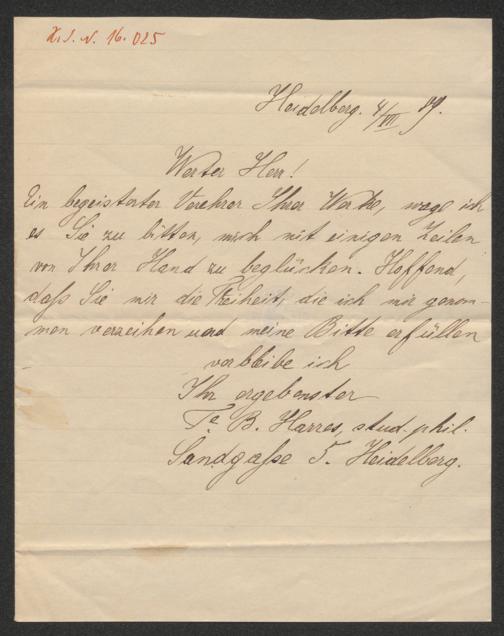 H.I.N. 16.025
Heidelberg. 4/VII 89.
Werter Herr!
Ein begeisterter Verehrer Ihrer Werke, wage ich
es Sie zu bitten, mich mit einigen Zeilen
von Ihrer Hand zu beglücken. Hoffend,
daß Sie mir die Freiheit, die ich mir genom-
men verzeihen und meine Bitte erfüllen
verbleibe ich
Ihr ergebenster
B. Harres, stud. phil.
Sandgaße 5. Heidelberg.